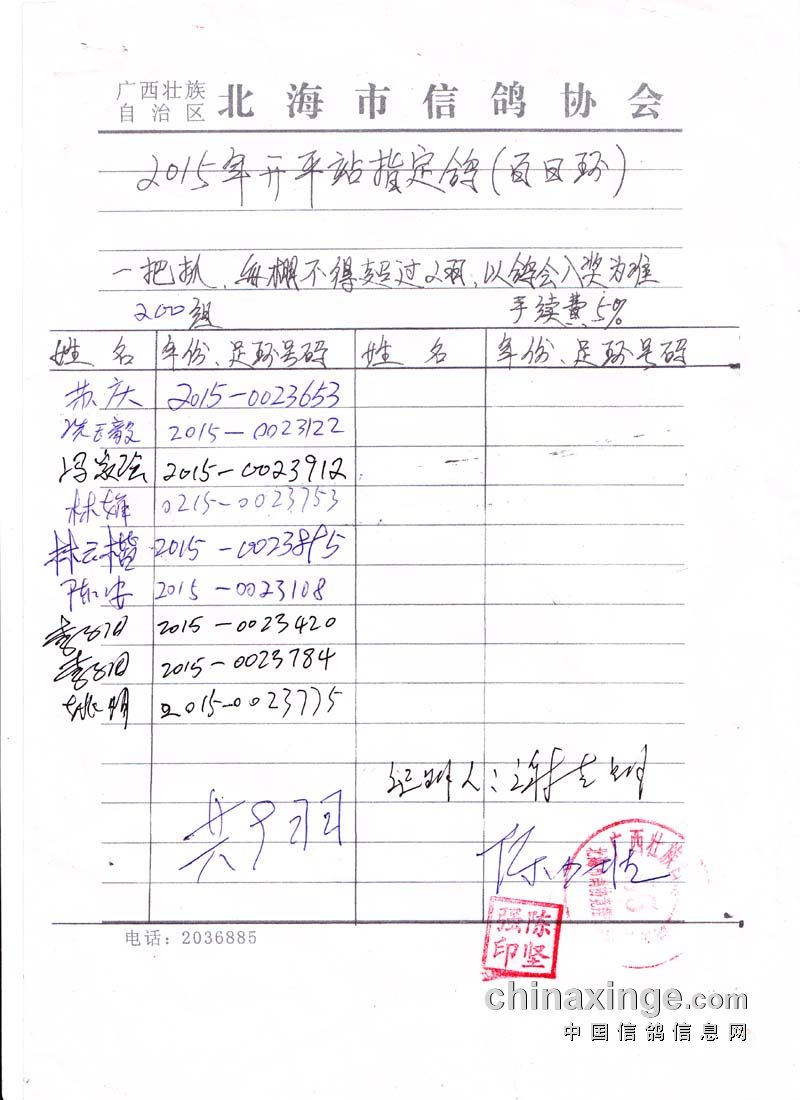 广西壮族
自治区 北海市信鸽协会
2015年开平站指定鸽(百日环)
一把扒、每棚不得超过2羽,以鸽会入奖为准
200组 手续费5%
姓名 年份、足环号码 姓名 年份、足环号码
苏庆 2015-0023653
冼王毅 2015-0023122
冯 2015-0023912
林雄 0215-0023753
林云楷 2015-0023895
陈安 2015-0023108
2015-0023420
2015-0023784
姚明 2015-0023775
证明人:谢志明
共9羽
广西壮族
陈坚强印
电话:2036885
chinaxinge.com
中国信鸽信息网